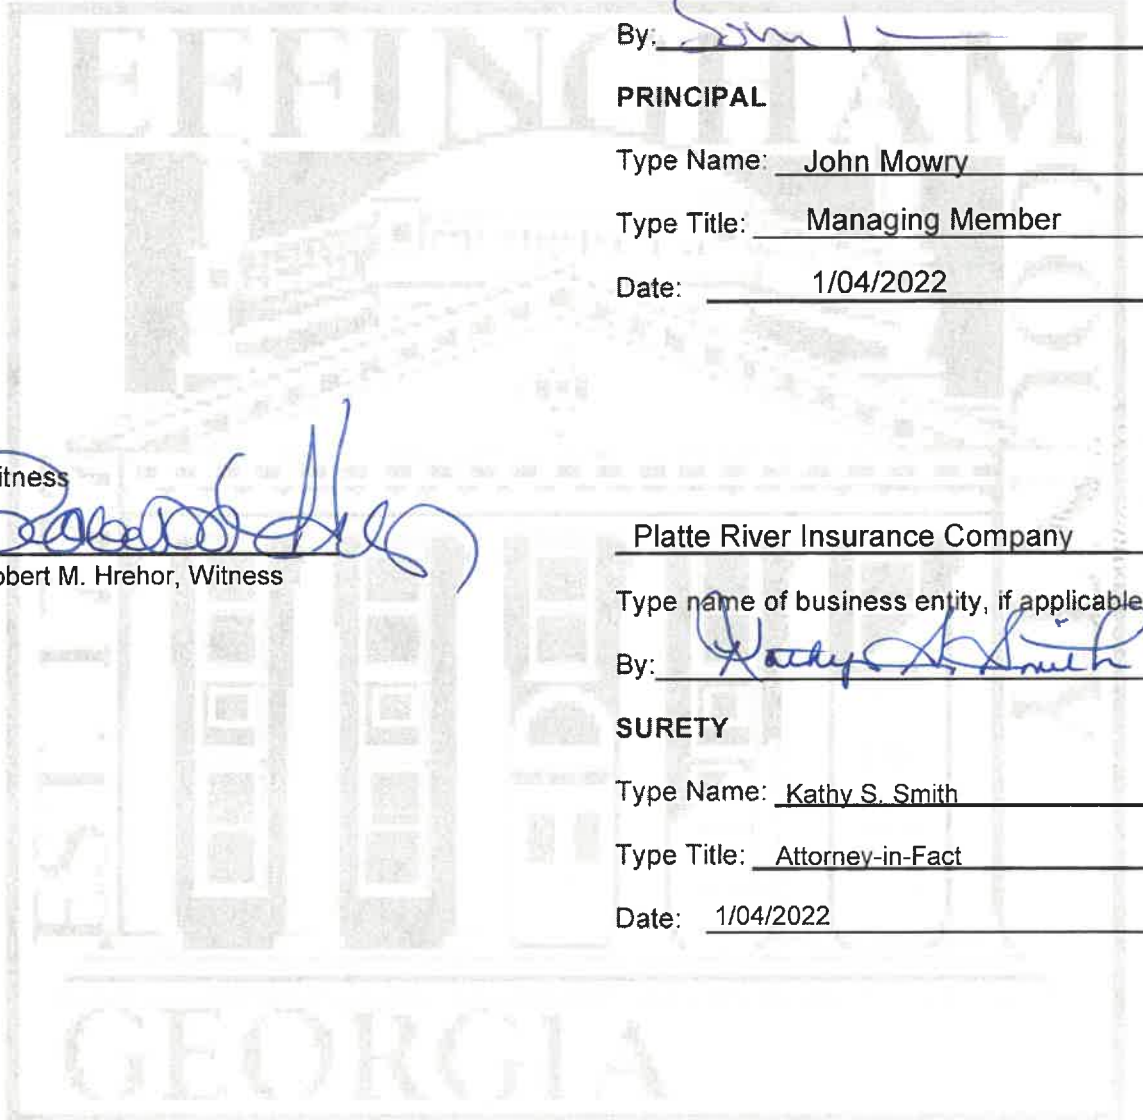 EFFINGHAM
By:
PRINCIPAL
Type Name: John Mowry
Type Title: Managing Member
Date: 1/04/2022
COUNTY
itness
obert M. Hrehor, Witness
Platte River Insurance Company
Type name of business entity, if applicable
By: Kathy S. Smith
SURETY
Type Name: Kathy S. Smith
Type Title: Attorney-in-Fact
Date: 1/04/2022
GEORGIA